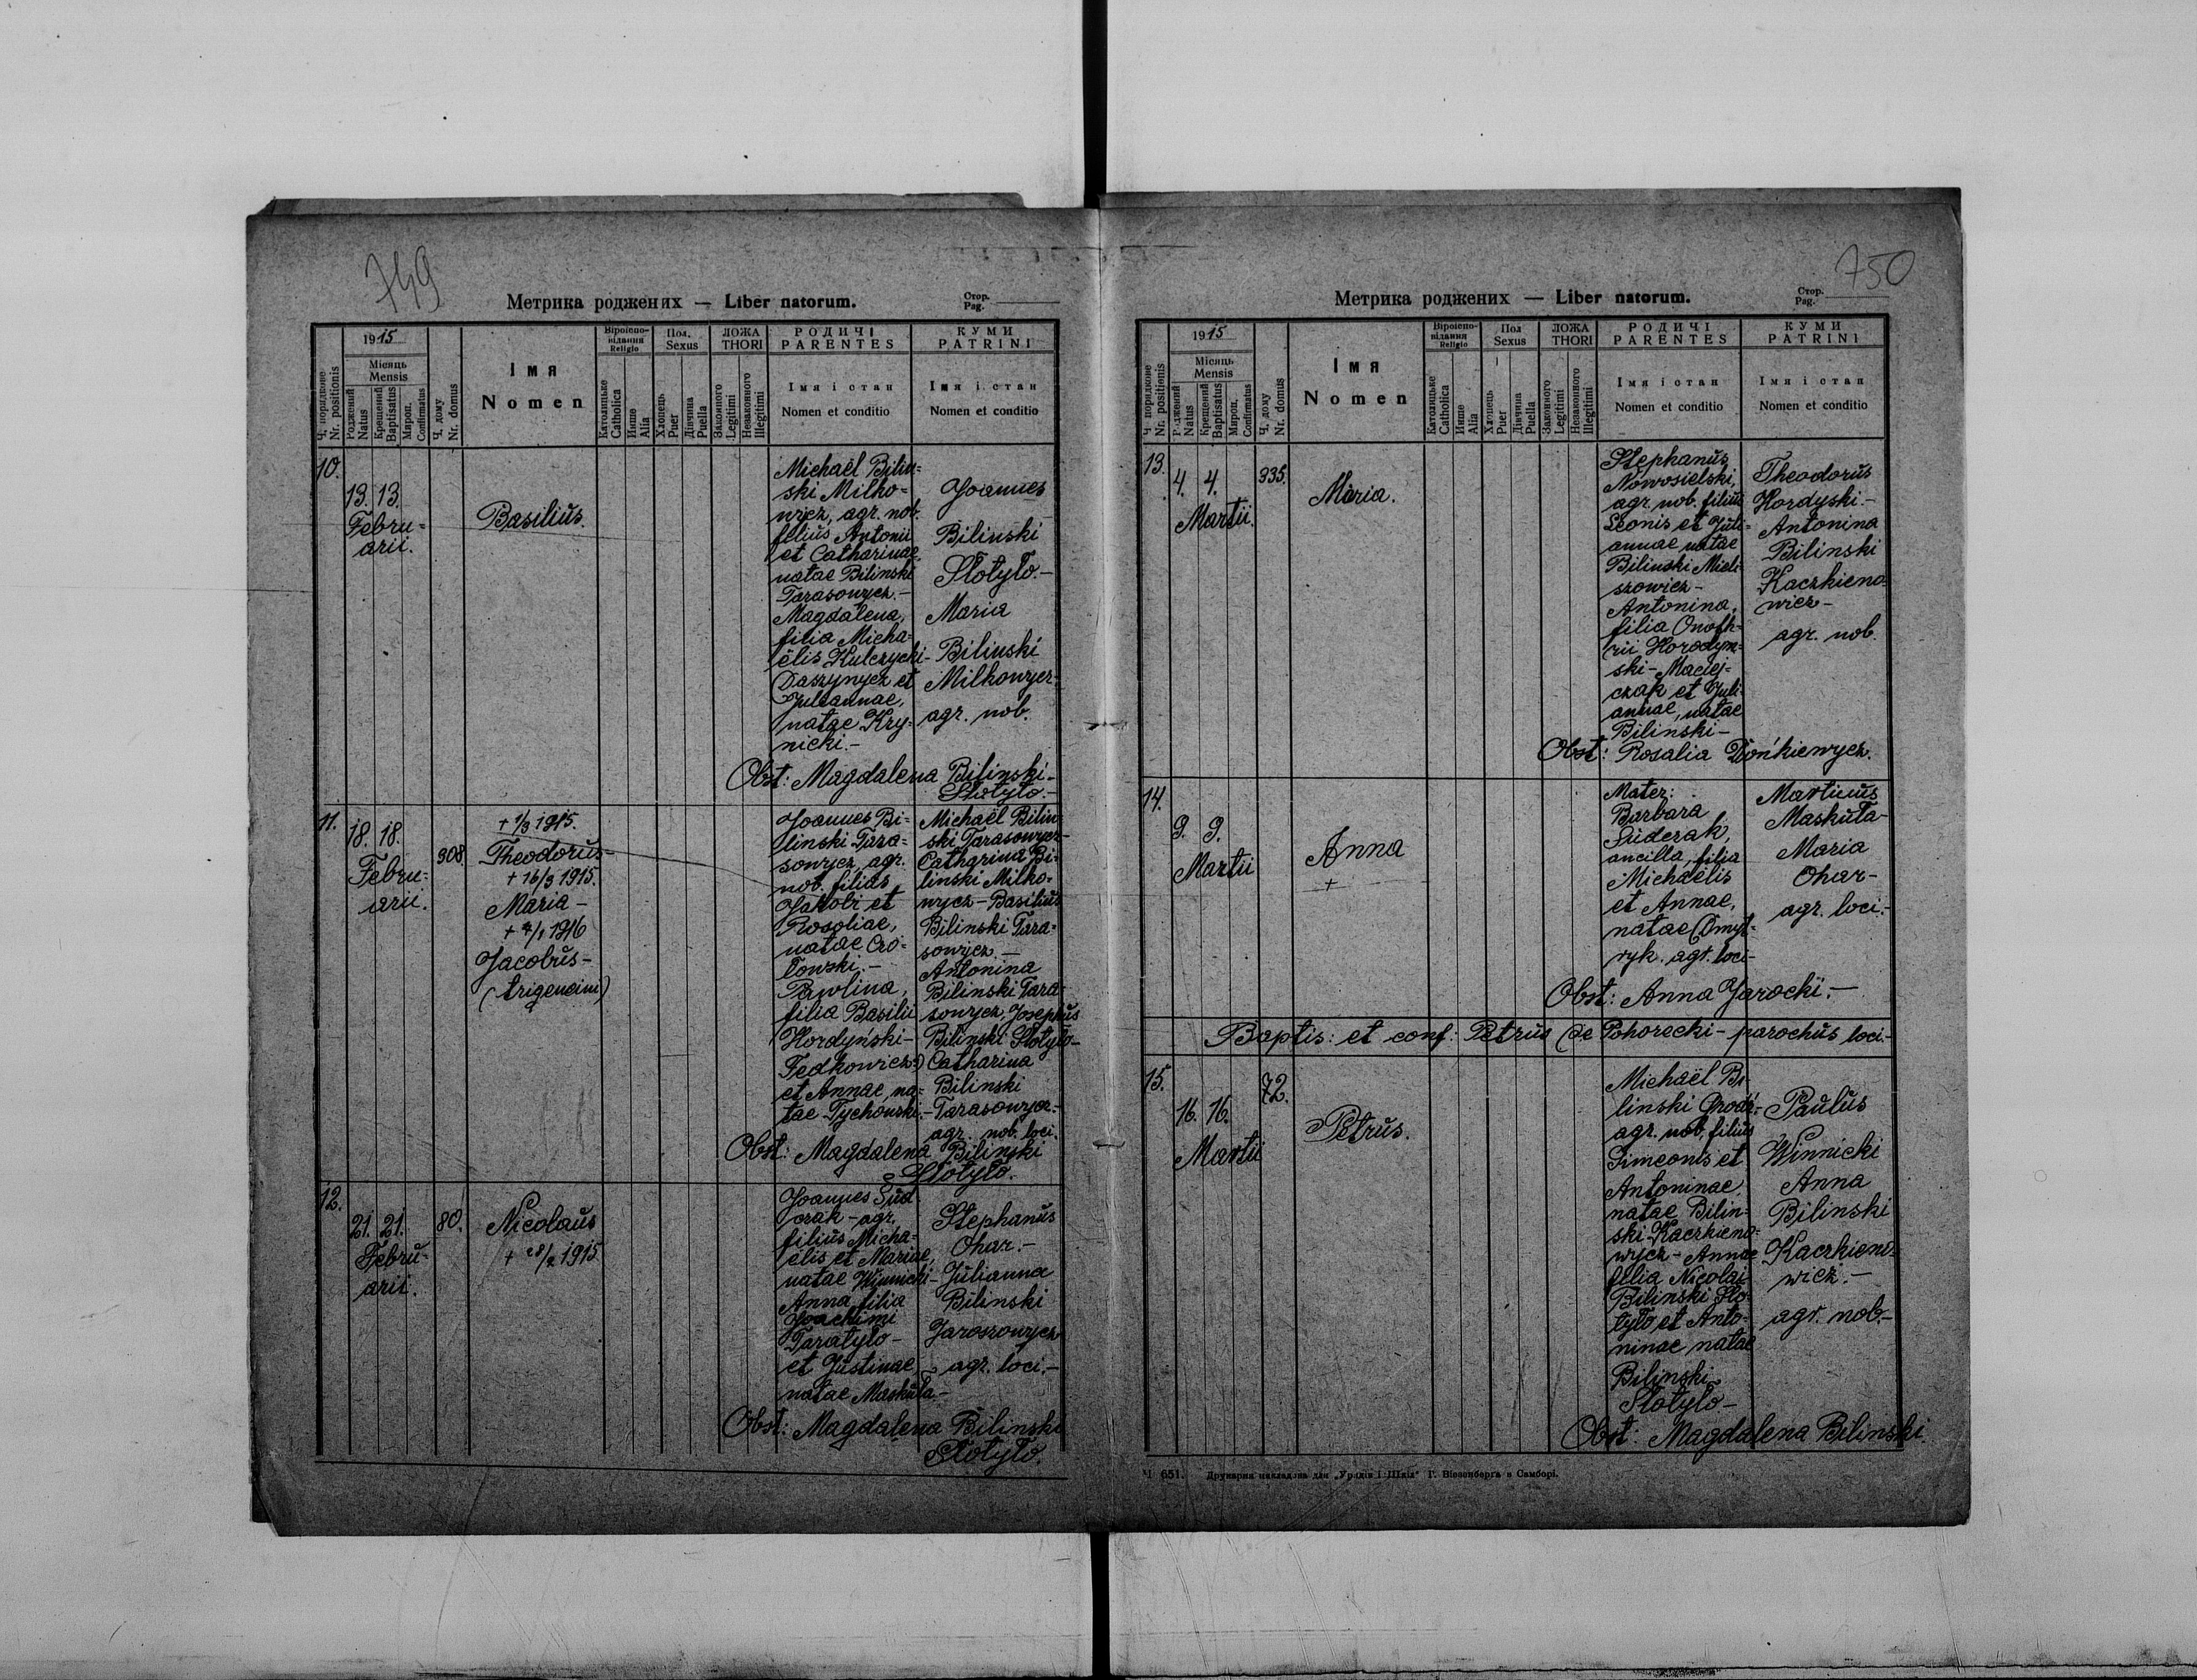 749
Метрика роджених — Liber natorum.
Стор.
Pag.
Ч. порядкове
Nr. positionis
1915
Місяць
Mensis
Роджений
Natus
Крещений
Baptisatus
Мироп.
Confirmatus
Ч. дому
Nr. domus
Імя
Nomen
Віроіспо-
відання
Religio
Католицьке
Catholica
Инше
Alia
Пол.
Sexus
Хлопець
Puer
Дівчина
Puella
ЛОЖА
THORI
Законного
Legitimi
Незаконного
Illegitimi
РОДИЧІ
PARENTES
Імя і стан
Nomen et conditio
КУМИ
PATRINI
Імя і стан
Nomen et conditio
10.
13. 13.
Febru-
arii.
Basilius.
Michaël Bilin-
ski Milko-
wycz, agr. nob.
filius Antonii
et Catharinae,
natae Bilinski
Tarasowycz.-
Magdalena,
filia Micha-
ëlis Kulczycki-
Daszynycz et
Juleannae,
natae Kry-
nicki.-
Joannes
Bilinski
Slotylo.-
Maria
Bilinski
Milkowycz-
agr. nob.
Obst: Magdalena Bilinski-
Slotylo.-
11.
18. 18.
Febru-
arii.
308.
+ 1/3 1915.
Theodorus-
+ 16/3 1915.
Maria-
+ 4/1 1916
Jacobus-
(trigemini)
Joannes Bi-
linski Tara-
sowycz, agr.
nob. filias
Jakobi et
Rosaliae,
natae Oro-
lowski.-
Pawlina,
filia Basilii
Hordyński-
Fedkowicz
et Annae, na-
tae Tychowski.-
Michaël Bilin-
ski Tarasowycz-
Catharina Bi-
linski Milko-
wycz-Basilius
Bilinski Tara-
sowycz.-
Antonina
Bilinski Tara-
sowycz, Josephus
Bilinski Slotylo-
Catharina
Bilinski
Tarasowycz-
agr. nob. loci.
Obst: Magdalena Bilinski
Slotylo.
12.
21. 21.
Febru-
arii.
80.
Nicolaus
+ 28/2 1915
Joannes Sud-
orak - agr.
filius Micha-
ëlis et Mariae,
natae Winnicki-
Anna filia
Joachimi
Taratylo-
et Justinae
natae Maskuta-
Stephanus
Ohar.-
Julianna
Bilinski
Jaroszowycz
agr. loci.-
Obst: Magdalena Bilinski
Slotylo.
750
Метрика роджених — Liber natorum.
Стор.
Pag.
Ч порядкове
Nr. positionis
1915
Місяць
Mensis
Роджений
Natus
Крещений
Baptisatus
Мироп.
Confirmatus
Ч. дому
Nr. domus
Імя
Nomen
Віроіспо-
відання
Religio
Католицьке
Catholica
Инше
Alia
Пол
Sexus
Хлопець
Puer
Дівчина
Puella
ЛОЖА
THORI
Законного
Legitimi
Незаконного
Illegitimi
РОДИЧІ
PARENTES
Імя і стан
Nomen et conditio
КУМИ
PATRINI
Імя і стан
Nomen et conditio
13.
4. 4.
Martii.
335.
Maria.
Stephanus
Nowosielski,
agr. nob. filius
Leonis et Juli-
annae natae
Bilinski Mieli-
szowicz-
Antonina,
filia Onoph-
rii Horodyn-
ski-Maciej-
czak et Juli-
annae, natae
Bilinski-
Theodorus
Hordyski.-
Antonina
Bilinski
Kaczkieno-
wicz-
agr. nob.
Obst: Rosalia Dońkiewycz.
14.
9. 9.
Martii
Anna
+
Mater:
Barbara
Suderak,
ancilla, filia
Michaëlis
et Annae,
natae Dmyt-
ryk. agr. loci-
Martinus
Maskuta-
Maria
Ohar-
agr. loci.-
Obst: Anna Jarocki.-
Baptis: et conf: Petrus de Pohorecki - parochus loci.-
15.
16. 16.
Martii
72.
Petrus.
Michaël Bi-
linski Grodź-
agr. nob, filius
Simeonis et
Antoninae,
natae Bilin-
ski-Kaczkieno-
wycz-Annae
filia Nicolai
Bilinski Slo-
tylo et Anto-
ninae natae
Bilinski
Slotylo-
Paulus
Winnicki
Anna
Bilinski
Kaczkieno-
wicz.-
agr. nob.-
Obst: Magdalena Bilinski.
Ч 651. Друкарня накладова для „Урядів і Шкіл" Г. Візенберга в Самборі.